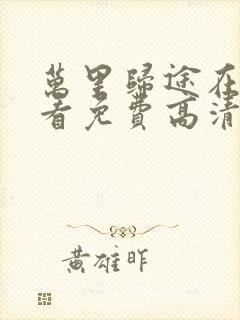 萬里歸途在
看免費高清
黃雄昨